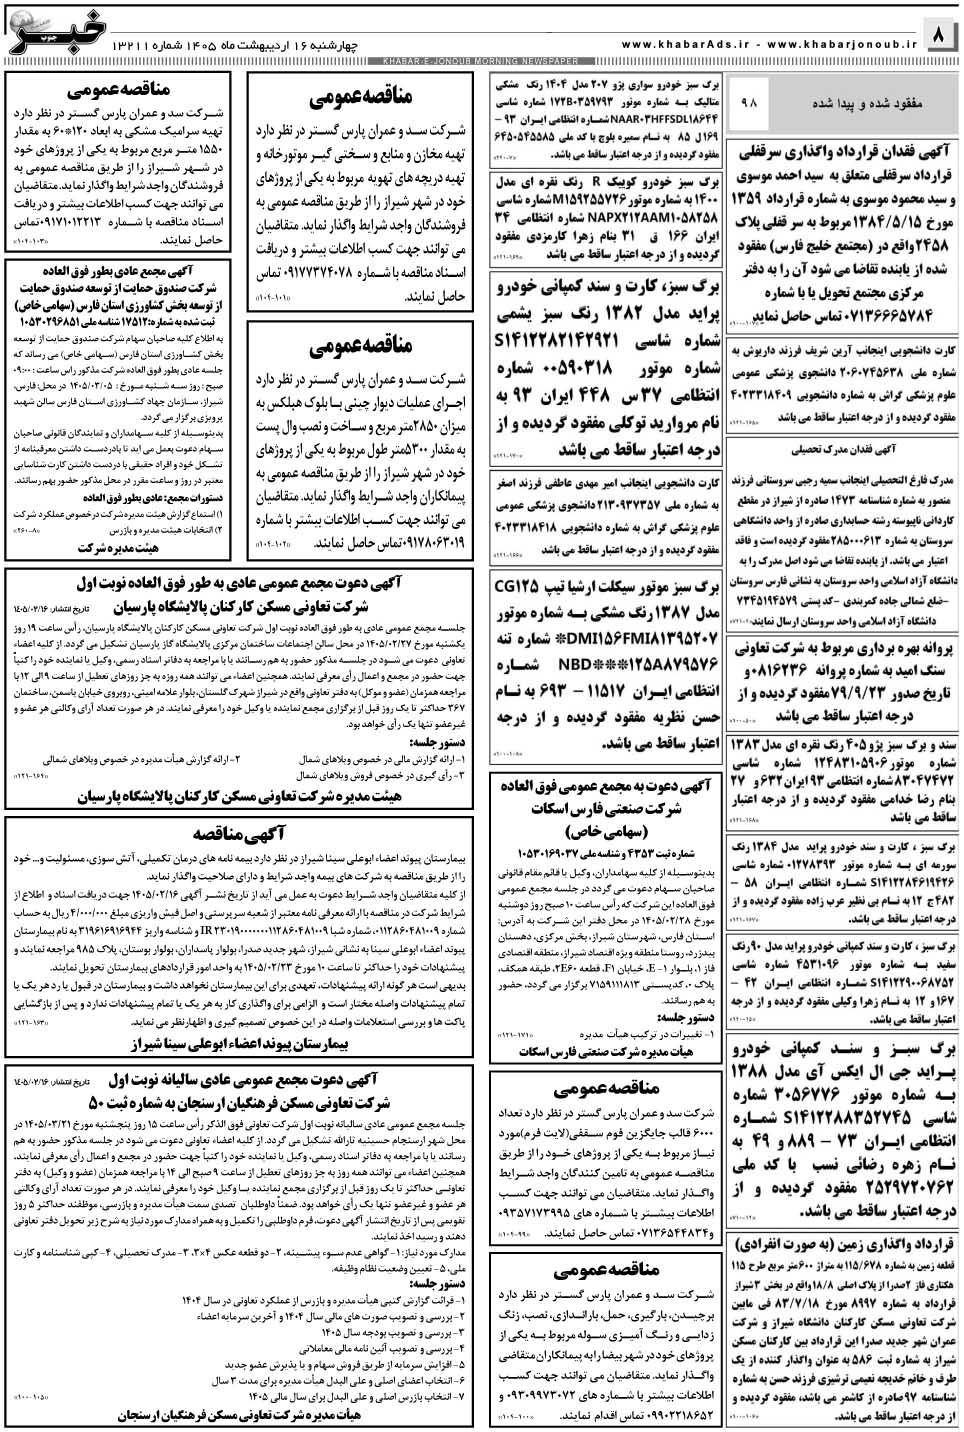 ۸
www.khabarAds.ir - www.khabarjonoub.ir
چهارشنبه ۱۶ اردیبهشت ماه ۱۴۰۵ شماره ۱۳۲۱۱
خبر جنوب
KHABAR-E-JONOUB MORNING NEWSPAPER
مفقود شده و پیدا شده
۹۸
آگهی فقدان قرارداد واگذاری سرقفلی
قرارداد سرقفلی متعلق به سید احمد موسوی
و سید محمود موسوی به شماره قرارداد ۱۳۵۹
مورخ ۱۳۸۴/۵/۱۵ مربوط به سر قفلی پلاک
۲۴۵۸ واقع در (مجتمع خلیج فارس) مفقود
شده از یابنده تقاضا می شود آن را به دفتر
مرکزی مجتمع تحویل یا با شماره
۰۷۱۳۶۶۶۵۷۸۴ تماس حاصل نماید
کارت دانشجویی اینجانب آرین شریف فرزند داریوش به
شماره ملی ۲۰۶۰۷۴۵۶۳۸ دانشجوی پزشکی عمومی
علوم پزشکی گراش به شماره دانشجویی ۴۰۲۳۳۱۸۴۰۹
مفقود گردیده و از درجه اعتبار ساقط می باشد
آگهی فقدان مدرک تحصیلی
مدرک فارغ التحصیلی اینجانب سمیه رجبی سروستانی فرزند
منصور به شماره شناسنامه ۱۴۷۳ صادره از شیراز در مقطع
کاردانی ناپیوسته رشته حسابداری صادره از واحد دانشگاهی
سروستان به شماره ۲۸۵۰۰۰۶۱۳ مفقود گردیده است و فاقد
اعتبار می باشد. از یابنده تقاضا می شود اصل مدرک را به
دانشگاه آزاد اسلامی واحد سروستان به نشانی فارس سروستان
-ضلع شمالی جاده کمربندی - کد پستی ۷۳۴۵۱۹۴۵۷۹
دانشگاه آزاد اسلامی واحد سروستان ارسال نمایند.
پروانه بهره برداری مربوط به شرکت تعاونی
سنگ امید به شماره پروانه ۰۸۱۶۲۳۶ و
تاریخ صدور ۷۹/۹/۲۳ مفقود گردیده و از
درجه اعتبار ساقط می باشد
سند و برگ سبز پژو ۴۰۵ رنگ نقره ای مدل ۱۳۸۳
شماره موتور ۱۲۴۸۳۱۰۵۹۰۶ شماره شاسی
۸۳۰۴۷۴۷۲ شماره انتظامی ۹۳ ایران ۶۳۲ و ۲۷
بنام رضا خدامی مفقود گردیده و از درجه اعتبار
ساقط می باشد
برگ سبز ، کارت و سند خودرو پراید مدل ۱۳۸۴ رنگ
سورمه ای به شماره موتور ۰۱۲۷۸۳۹۳ شماره شاسی
S۱۴۱۲۲۸۴۶۱۹۴۲۶ شماره انتظامی ایران ۵۸ –
۴۸۲ ج ۱۲ به نام بی نظیر عرب زاده مفقود گردیده و از
درجه اعتبار ساقط می باشد.
برگ سبز ، کارت و سند کمپانی خودرو پراید مدل ۹۰ رنگ
سفید به شماره موتور ۴۵۳۱۰۹۶ شماره شاسی
S۱۴۱۲۲۹۰۰۶۸۷۵۲ شماره انتظامی ایران ۴۲ –
۱۶۷ و ۱۲ به نام زهرا وکیلی مفقود گردیده و از درجه
اعتبار ساقط می باشد.
برگ سبز و سند کمپانی خودرو
پراید جی ال ایکس آی مدل ۱۳۸۸
به شماره موتور ۳۰۵۶۷۷۶ شماره
شاسی S۱۴۱۲۲۸۸۳۵۲۷۴۵ شماره
انتظامی ایران ۷۳ – ۸۸۹ و ۴۹ به
نام زهره رضائی نسب با کد ملی
۲۵۲۹۷۲۰۷۶۲ مفقود گردیده و از
درجه اعتبار ساقط می باشد.
قرارداد واگذاری زمین (به صورت انفرادی)
قطعه زمین به شماره ۱۱۵/۶۷۸ به متراژ ۶۰۰ متر مربع طرح ۱۱۵
هکتاری فاز ۲ صدرا از پلاک اصلی ۱۸/۸ واقع در بخش ۳ شیراز
قرارداد به شماره ۸۹۹۷ مورخ ۸۳/۷/۱۸ فی مابین
شرکت تعاونی مسکن کارکنان دانشگاه شیراز و شرکت
عمران شهر جدید صدرا این قرارداد بین کارکنان مسکن
شیراز به شماره ثبت ۵۸۶ به عنوان واگذار کننده از یک
طرف و خانم خدیجه نعیمی ترشیزی فرزند حسن به شماره
شناسنامه ۹۷ صادره از کاشمر می باشد، مفقود گردیده و
از درجه اعتبار ساقط می باشد.
برگ سبز خودرو سواری پژو ۲۰۷ مدل ۱۴۰۴ رنگ مشکی
متالیک به شماره موتور ۱۷۲B۰۳۵۹۷۹۳ شماره شاسی
NAAR۰۳HFFSDL۱۸۶۴۴ شماره انتظامی ایران ۹۳ –
۱۶۹ ل ۸۵ به نام سمیره بلوچ با کد ملی ۶۴۵۰۵۴۵۵۸۵
مفقود گردیده و از درجه اعتبار ساقط می باشد.
برگ سبز خودرو کوییک R رنگ نقره ای مدل
۱۴۰۰ به شماره موتور M۱۵۹۲۵۵۷۲۶ شماره شاسی
NAPX۲۱۲AAM۱۰۵۸۲۵۸ شماره انتظامی ۳۴
ایران ۱۶۶ ق ۳۱ بنام زهرا کارمزدی مفقود
گردیده و از درجه اعتبار ساقط می باشد
برگ سبز، کارت و سند کمپانی خودرو
پراید مدل ۱۳۸۲ رنگ سبز یشمی
شماره شاسی S۱۴۱۲۲۸۲۱۴۲۹۲۱
شماره موتور ۰۰۵۹۰۳۱۸ شماره
انتظامی ۳۷ س ۴۴۸ ایران ۹۳ به
نام مروارید توکلی مفقود گردیده و از
درجه اعتبار ساقط می باشد
کارت دانشجویی اینجانب امیر مهدی عاطفی فرزند اصغر
به شماره ملی ۲۱۳۰۹۳۷۳۵۷ دانشجوی پزشکی عمومی
علوم پزشکی گراش به شماره دانشجویی ۴۰۲۳۳۱۸۴۱۸
مفقود گردیده و از درجه اعتبار ساقط می باشد.
برگ سبز موتور سیکلت ارشیا تیپ CG۱۲۵
مدل ۱۳۸۷ رنگ مشکی به شماره موتور
DMI۱۵۶FMI۸۱۳۹۵۲۰۷* شماره تنه
NBD***۱۲۵A۸۷۹۵۷۶ شماره
انتظامی ایران ۱۱۵۱۷ – ۶۹۳ به نام
حسن نظریه مفقود گردیده و از درجه
اعتبار ساقط می باشد.
آگهی دعوت به مجمع عمومی فوق العاده
شرکت صنعتی فارس اسکات
(سهامی خاص)
شماره ثبت ۴۳۵۳ و شناسه ملی ۱۰۵۳۰۱۶۹۰۳۷
بدینوسیله از کلیه سهامداران، وکیل یا قائم مقام قانونی
صاحبان سهام دعوت می گردد در جلسه مجمع عمومی
فوق العاده این شرکت که رأس ساعت ۱۰ صبح روز دوشنبه
مورخ ۱۴۰۵/۰۲/۲۸ در محل دفتر این شرکت به آدرس:
استان فارس، شهرستان شیراز، بخش مرکزی، دهستان
بیدزرد، روستا منطقه ویژه اقتصاد شیراز، منطقه اقتصادی
فاز ۱، بلوار E-۱، خیابان F۱، قطعه ۲E۶۰، طبقه همکف،
پلاک ۰، کدپستی ۷۱۵۹۱۱۱۸۱۳ برگزار می گردد، حضور
به هم رسانند.
دستور جلسه:
۱- تغییرات در ترکیب هیأت مدیره
هیأت مدیره شرکت صنعتی فارس اسکات
مناقصه عمومی
شرکت سد و عمران پارس گستر در نظر دارد تعداد
۶۰۰۰ قالب جایگزین فوم سقفی (لایت فرم) مورد
نیاز مربوط به یکی از پروژهای خود را از طریق
مناقصه عمومی به تامین کنندگان واجد شرایط
واگذار نماید. متقاضیان می توانند جهت کسب
اطلاعات بیشتر با شماره های ۰۹۳۵۷۱۷۳۹۹۵
و ۰۷۱۳۶۵۴۴۸۳۴ تماس حاصل نمایند.
مناقصه عمومی
شرکت سد و عمران پارس گستر در نظر دارد
برچیدن، بارگیری، حمل، باراندازی، نصب، زنگ
زدایی و رنگ آمیزی سوله مربوط به یکی از
پروژهای خود در شهر بیضا را به پیمانکاران متقاضی
واگذار نماید. متقاضیان می توانند جهت کسب
اطلاعات بیشتر با شماره های ۰۹۳۰۹۹۷۳۰۷۲ و
۰۹۹۰۲۲۱۸۶۵۲ تماس اقدام نمایند.
مناقصه عمومی
شرکت سد و عمران پارس گستر در نظر دارد
تهیه مخازن و منابع و سختی گیر موتورخانه و
تهیه دریچه های تهویه مربوط به یکی از پروژهای
خود در شهر شیراز را از طریق مناقصه عمومی به
فروشندگان واجد شرایط واگذار نماید. متقاضیان
می توانند جهت کسب اطلاعات بیشتر و دریافت
اسناد مناقصه با شماره ۰۹۱۷۷۳۷۴۰۷۸ تماس
حاصل نمایند.
مناقصه عمومی
شرکت سد و عمران پارس گستر در نظر دارد
اجرای عملیات دیوار چینی با بلوک هبلکس به
میزان ۲۸۵۰ متر مربع و ساخت و نصب وال پست
به مقدار ۵۳۰۰ متر طول مربوط به یکی از پروژهای
خود در شهر شیراز را از طریق مناقصه عمومی به
پیمانکاران واجد شرایط واگذار نماید. متقاضیان
می توانند جهت کسب اطلاعات بیشتر با شماره
۰۹۱۷۸۰۶۳۰۱۹ تماس حاصل نمایند.
مناقصه عمومی
شرکت سد و عمران پارس گستر در نظر دارد
تهیه سرامیک مشکی به ابعاد ۱۲۰*۶۰ به مقدار
۱۵۵۰ متر مربع مربوط به یکی از پروژهای خود
در شهر شیراز را از طریق مناقصه عمومی به
فروشندگان واجد شرایط واگذار نماید. متقاضیان
می توانند جهت کسب اطلاعات بیشتر و دریافت
اسناد مناقصه با شماره ۰۹۱۷۱۰۱۲۲۱۳ تماس
حاصل نمایند.
آگهی مجمع عادی بطور فوق العاده
شرکت صندوق حمایت از توسعه صندوق حمایت
از توسعه بخش کشاورزی استان فارس (سهامی خاص)
ثبت شده به شماره: ۱۷۵۱۲ شناسه ملی ۱۰۵۳۰۲۹۶۸۵۱
به اطلاع کلیه صاحبان سهام شرکت صندوق حمایت از توسعه
بخش کشاورزی استان فارس (سهامی خاص) می رساند که
جلسه عادی بطور فوق العاده شرکت مذکور راس ساعت : ۰۹:۰۰
صبح : روز سه شنبه مورخ : ۱۴۰۵/۰۳/۰۵ در محل: فارس،
شیراز، سازمان جهاد کشاورزی استان فارس سالن شهید
پرویزی برگزار می گردد.
بدینوسیله از کلیه سهامداران و نمایندگان قانونی صاحبان
سهام دعوت بعمل می اید تا بادردست داشتن معرفینامه از
تشکل خود و افراد حقیقی با دردست داشتن کارت شناسایی
معتبر در روز و ساعت مقرر در محل مذکور حضور بهم رسانند.
دستورات مجمع: عادی بطور فوق العاده
۱) استماع گزارش هیئت مدیره شرکت در خصوص عملکرد شرکت
۲) انتخابات هیئت مدیره و بازرس
هیئت مدیره شرکت
آگهی دعوت مجمع عمومی عادی به طور فوق العاده نوبت اول
شرکت تعاونی مسکن کارکنان پالایشگاه پارسیان
تاریخ انتشار: ۱۴۰۵/۰۲/۱۶
جلسه مجمع عمومی عادی به طور فوق العاده نوبت اول شرکت تعاونی مسکن کارکنان پالایشگاه پارسیان، رأس ساعت ۱۹ روز
یکشنبه مورخ ۱۴۰۵/۰۲/۲۷ در محل سالن اجتماعات ساختمان مرکزی پالایشگاه گاز پارسیان تشکیل می گردد. از کلیه اعضاء
تعاونی دعوت می شود در جلسه مذکور حضور به هم رسانند یا با مراجعه به دفاتر اسناد رسمی، وکیل یا نماینده خود را کتباً
جهت حضور در مجمع و اعمال رأی معرفی نمایند. همچنین اعضاء می توانند همه روزه به جز روزهای تعطیل از ساعت ۹ الی ۱۲ با
مراجعه همزمان (عضو و موکل) به دفتر تعاونی واقع در شیراز شهرک گلستان، بلوار علامه امینی، روبروی خیابان یاسمن، ساختمان
۳۶۷ حداکثر تا یک روز قبل از برگزاری مجمع نماینده یا وکیل خود را معرفی نمایند. در هر صورت تعداد آرای وکالتی هر عضو و
غیرعضو تنها یک رأی خواهد بود.
دستور جلسه:
۱- ارائه گزارش مالی در خصوص ویلاهای شمال
۲- ارائه گزارش هیأت مدیره در خصوص ویلاهای شمالی
۳- رأی گیری در خصوص فروش ویلاهای شمال
هیئت مدیره شرکت تعاونی مسکن کارکنان پالایشگاه پارسیان
آگهی مناقصه
بیمارستان پیوند اعضاء ابوعلی سینا شیراز در نظر دارد بیمه نامه های درمان تکمیلی، آتش سوزی، مسئولیت و... خود
را از طریق مناقصه به شرکت های بیمه واجد شرایط و دارای صلاحیت واگذار نماید.
از کلیه متقاضیان واجد شرایط دعوت به عمل می آید از تاریخ نشر آگهی ۱۴۰۵/۰۲/۱۶ جهت دریافت اسناد و اطلاع از
شرایط شرکت در مناقصه با ارائه معرفی نامه معتبر از شعبه سرپرستی و اصل فیش واریزی مبلغ ۴/۰۰۰/۰۰۰ ریال به حساب
شماره ۰۱۱۲۸۶۰۴۸۱۰۰۹، شماره شبا IR ۲۳۰۱۹۰۰۰۰۰۰۰۱۱۲۸۶۰۴۸۱۰۰۹ و شناسه واریز ۳۱۹۶۱۶۹۱۶۹۴۴ به نام بیمارستان
پیوند اعضاء ابوعلی سینا به نشانی شیراز، شهر جدید صدرا، بولوار پاسداران، بولوار بوستان، پلاک ۹۸۵ مراجعه نمایند و
پیشنهادات خود را حداکثر تا ساعت ۱۰ مورخ ۱۴۰۵/۰۲/۲۳ به واحد امور قراردادهای بیمارستان تحویل نمایند.
بدیهی است هر گونه ارائه پیشنهادات، تعهدی برای این بیمارستان نخواهد داشت و بیمارستان در قبول یا رد هر یک یا
تمام پیشنهادات واصله مختار است و الزامی برای واگذاری کار به هر یک یا تمام پیشنهادات ندارد و پس از بازگشایی
پاکت ها و بررسی استعلامات واصله در این خصوص تصمیم گیری و اظهارنظر می نماید.
بیمارستان پیوند اعضاء ابوعلی سینا شیراز
آگهی دعوت مجمع عمومی عادی سالیانه نوبت اول
تاریخ انتشار: ۱۴۰۵/۰۲/۱۶
شرکت تعاونی مسکن فرهنگیان ارسنجان به شماره ثبت ۵۰
جلسه مجمع عمومی عادی سالیانه نوبت اول شرکت تعاونی فوق الذکر رأس ساعت ۱۵ روز پنجشنبه مورخ ۱۴۰۵/۰۳/۲۱ در
محل شهر ارسنجان حسینیه ثارالله تشکیل می گردد. از کلیه اعضاء تعاونی دعوت می شود در جلسه مذکور حضور به هم
رسانند، یا با مراجعه به دفاتر اسناد رسمی، وکیل یا نماینده خود را کتباً جهت حضور در مجمع و اعمال رأی معرفی نمایند.
همچنین اعضاء می توانند همه روزه به جز روزهای تعطیل از ساعت ۹ صبح الی ۱۴ با مراجعه همزمان (عضو و وکیل) به دفتر
تعاونی حداکثر تا یک روز قبل از برگزاری مجمع نماینده یا وکیل خود را معرفی نمایند. در هر صورت تعداد آرای وکالتی
هر عضو و غیرعضو تنها یک رأی خواهد بود. ضمناً داوطلبان تصدی سمت هیأت مدیره و بازرسی، موظفند حداکثر ۵ روز
تقویمی پس از تاریخ انتشار آگهی دعوت، فرم داوطلبی را تکمیل و به همراه مدارک مورد نیاز به شرح زیر تحویل دفتر تعاونی
دهند و رسید اخذ نمایند.
مدارک مورد نیاز: ۱- گواهی عدم سوء پیشینه، ۲- دو قطعه عکس ۴×۳، ۳- مدرک تحصیلی، ۴- کپی شناسنامه و کارت
ملی، ۵- تعیین وضعیت نظام وظیفه.
دستور جلسه:
۱- قرائت گزارش کتبی هیأت مدیره و بازرس از عملکرد تعاونی در سال ۱۴۰۴
۲- بررسی و تصویب صورت های مالی سال ۱۴۰۴ و آخرین سرمایه اعضاء
۳- بررسی و تصویب بودجه سال ۱۴۰۵
۴- بررسی و تصویب آئین نامه مالی معاملاتی
۵- افزایش سرمایه از طریق فروش سهام و یا پذیرش عضو جدید
۶- انتخاب اعضای اصلی و علی البدل هیأت مدیره برای مدت ۳ سال
۷- انتخاب بازرس اصلی و علی البدل برای سال مالی ۱۴۰۵
هیأت مدیره شرکت تعاونی مسکن فرهنگیان ارسنجان